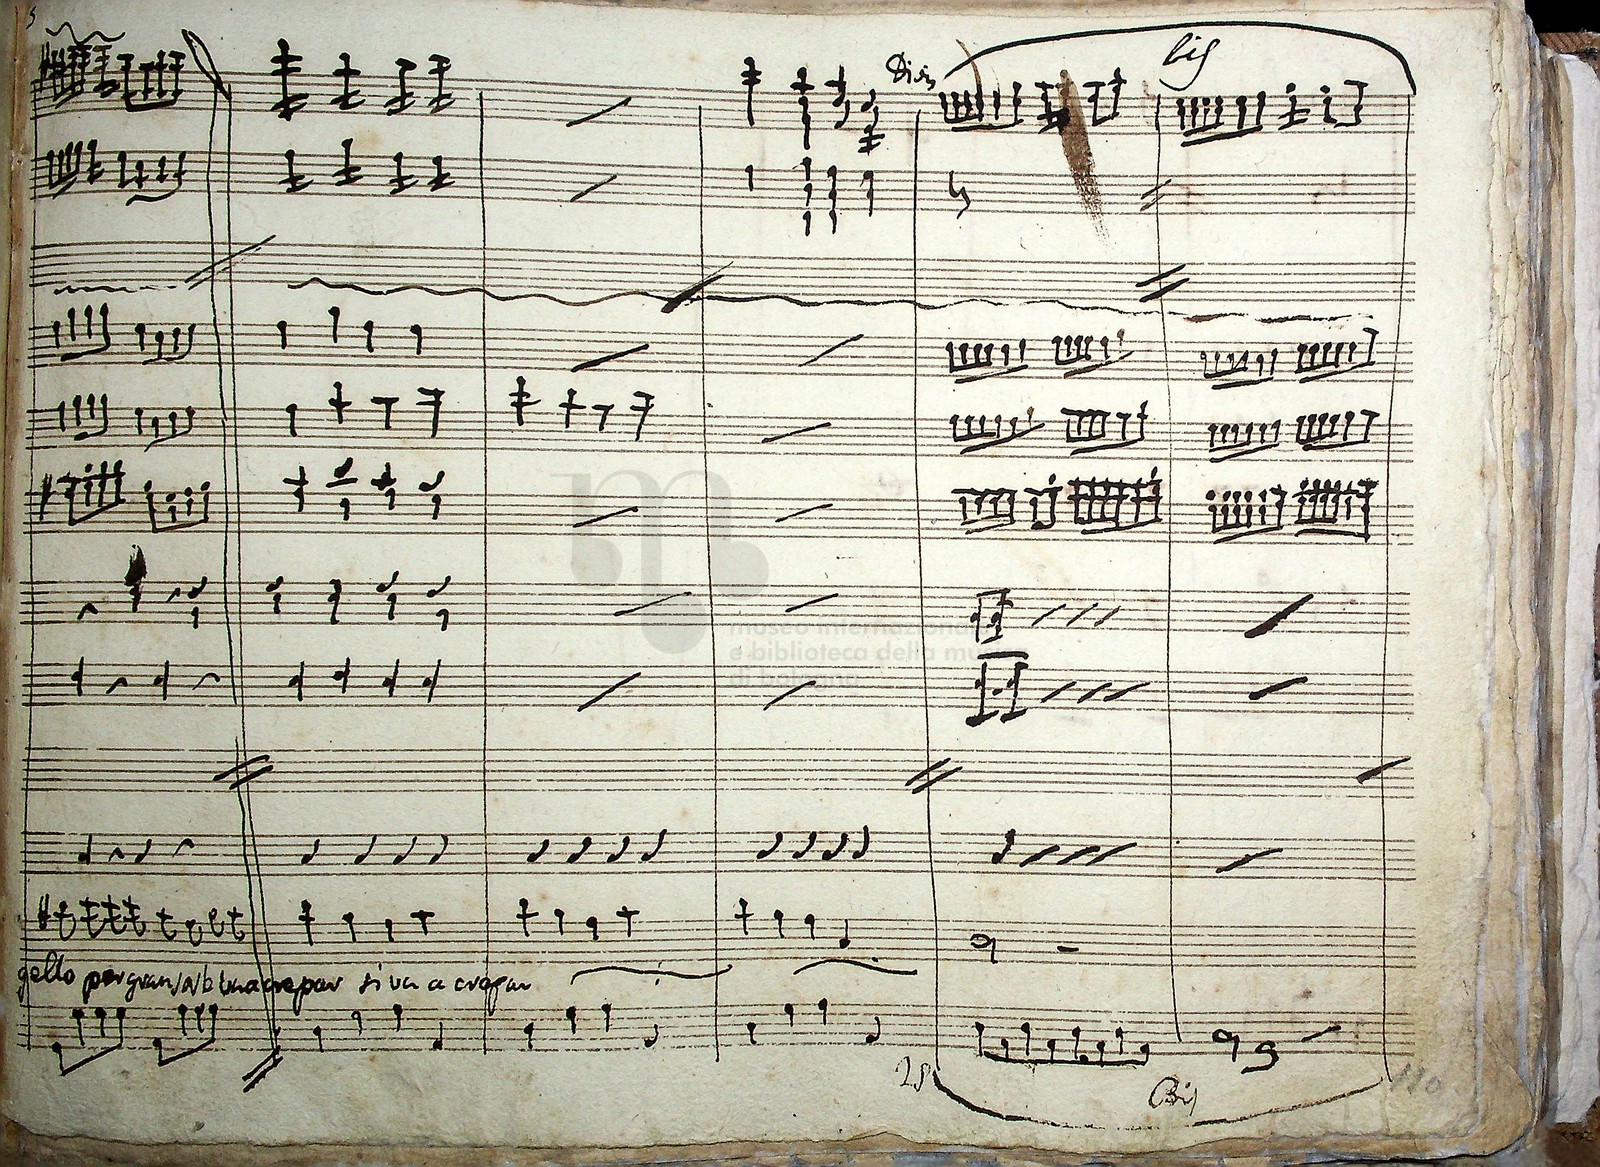 bis
museo internazionale
e biblioteca della musica
di bologna
gello per gran rabbia crepar si va a crepar
28
Bis
110